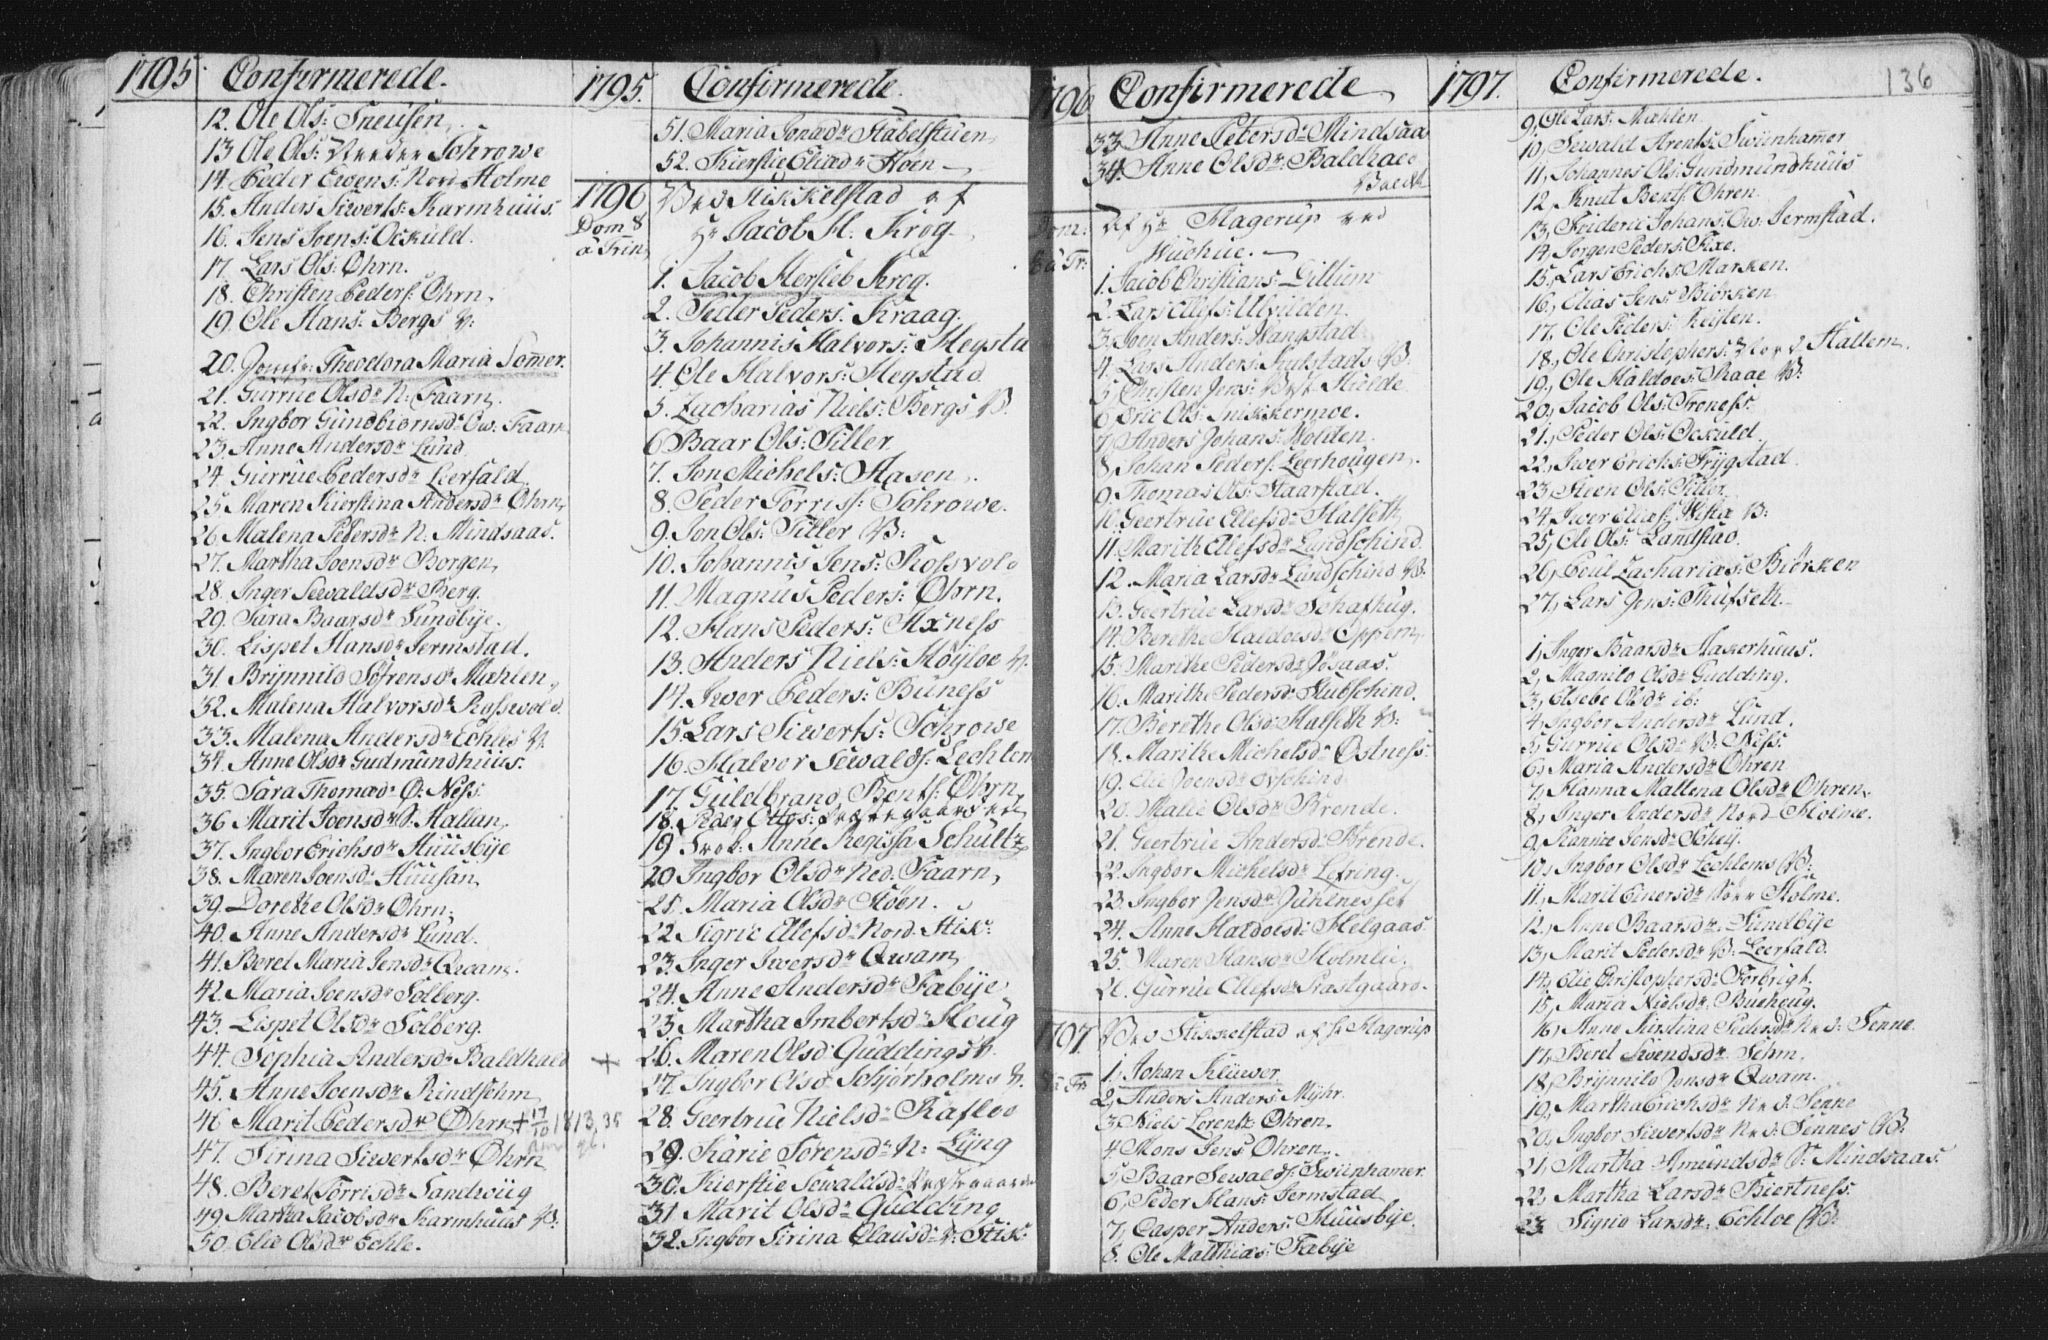 1795. Confirmerede.
12. Ole Ols: Sneusen.
13 Ole Ols: Schrowe
14. Peder Evens: Nord Holme
15. Anders Siwerts: Karmhuus.
16. Jens Joens: Ockuld.
17. Lars Ols: Öhrn.
18. Christen Peders: Öhrn.
19. Ole Hans: Bergs V:
20. Jomfr: Theodora Maria Somer.
21. Gurrue Olsdr N: Faarn.
22. Ingbor Gundbiörnsdr Ow: Faarn
23. Anne Andersdr Lund.
24. Gurrue Pedersdr Leerfald.
25 Maren Kierstina Andersdr Öhrn,
26 Malena Pedersdr N: Mindsaas.
27. Martha Joensdr Borgen,
28. Inger Sewaldsdr Berg.
29. Sara Baarsdr Sundbÿe.
30. Lispet Hansdr Sermstad.
31. Brÿnnild Sörensdr Mæhlen,
32. Malena Halvorsdr Rossvold.
33. Malena Andersdr Echles V.
34. Anne Olsdr Gudmundhuus.
35. Sara Thomædr Ö: Ness.
36 Marit Joensdr S. Hallan,
37. Ingbor Erichsdr Huusbÿe
38. Maren Joensdr Huusan,
39. Dorethe Olsdr Öhrn,
40. Anne Andersdr Lund.
41. Beret Maria Jensdr Qwam.
42. Maria Joensdr Solberg.
43. Lispet Olsdr Solberg.
44. Sophia Andersdr Baldhald
45. Anne Joensdr Rindsehm
46 Marit Pedersdr Öhrn + 17/10 1813, 35
47. Sirina Siwertsdr Öhrn
48. Beret Torrisdr Sandwüg
49. Martha Jacobsdr Karmhuus V:
50. Elie Olsdr Echle.
1795. Confirmerede.
51. Maria Jonædr Stabelstuen,
52. Kierstie Eliædr Hoen
1796 Ved Stikkelstad af
Dom 8 Hr Jacob H. Krog.
a Trin,
1. Jacob Hersleb Krog.
2. Peder Peders: Kraag.
3. Johannis Halvors: Hegsta
4. Ole Halvors: Hegstad
5. Zacharias Niels: Bergs V.
6 Baar Ols: Tiller
7. Jon Michels: Aasen,
8 Peder Torriss: Schrowe.
9. Jon Ols: Tiller V:
10. Johannis Jens: Rossvold
11. Magnus Peders: Öhrn.
12. Hans Peders: Axness
13. Anders Niels: Höÿloe V.
14. Iwer Peders: Buness
15 Lars Siwerts: Schrowe
16. Halvor Sewalds: Lechten
17. Guldbrand Bents: Öhrn,
18. Peder Ottos:
19 Anne Regissa Schultz
20 Ingbor Olsdr Ned. Faarn,
21. Maria Olsdr Höen.
22 Sigrie Ellefsdr Nord: Stik:
23. Inger Iwersdr Qwam,
24. Anne Andersdr Fæbÿe
25. Martha Imbertsdr Houg
26. Maren Olsdr Guddings V.
27. Ingbor Olsdr Schjörholms V.
28. Geertrue Nielsdr Kafloe
29 Karie Sörensdr N: Lÿng
30. Kierstie Sewaldsdr
31 Marit Olsdr Gudding
32. Ingbor Sirina Clausdr V: Stik:
1796 Confirmerede
33. Anne Petersdr Mindsaa
34. Anne Olsdr Baldhald
Dom: af Hr Hagerup ved
a Tr: Wuchue.
1. Jacob Christians: Lillium
2. Lars Ellefs: Ulvilden.
3. Joen Anders: Wangstad.
4. Lars Anders: Julstads V.
5 Christen Jens: Hulde
6 Eric Ols: Snikkermoe.
7, Anders Johans: Wolden.
8, Johan Peders: Leerhougen,
9 Thomas Ols: Staarstad.
10. Geertrue Ellefsdr Halseth
11. Marith Ellefsdr Lundschind.
12. Maria Larsdr Lundschind V.
13. Geertrue Larsdr Schafhug.
14. Berethe Haldoesdr Oppem,
15. Marithe Pedersdr Jösaas.
16. Marith Pedersdr Stubschind.
17. Berethe Olsdr Halseth V:
18. Marithe Michelsdr Östness.
19. Elie Joensdr Ovschind
20. Malie Olsdr Brende.
21. Geertrue Andersdr Brende.
22. Ingbor Michelsdr Lefring.
23. Ingbor Jensdr Julnesset
24. Anne Haldoesdr Helgaas.
25. Maren Hansdr Holmlie.
26. Gurrue Ellefsdr Præstgaard.
1797. Ved Stikkelstad af Hr Hagerup
a Tr:
1, Johan Klüwer.
2, Anders Anders: Mÿhr.
3 Niels Lorentz Öhren.
4 Mons Jens: Öhren.
5 Baar Sewalds: Swünhamer
6, Peder Hans: Sermstad
7, Casper Anders: Huusbÿe.
8. Ole Matthias: Fæbÿe
1797. Confirmerede. 136
9, Ole Lars: Mæhlen.
10, Sewald Arents: Swünhamer
11, Johannes Ols: Gundmundhuus
12 Knut Bents: Öhren.
13, Frideric Johans: Ow: Sermstad.
14, Jörgen Peders: Fixe.
15, Lars Erichs: Marken.
16, Elias Jens: Biörken
17, Ole Peders: Keisten.
18, Ole Christophers: Nord Hallem.
19, Ole Haldoes: Skaae V:
20, Jacob Ols: Troness.
21, Peder Ols: Ockuld.
22, Iwer Erichs: Trÿgstad.
23, Steen Ols: Tiller
24, Iwer Elias: Wista V:
25, Ole Ols: Landstad.
26, Poul Zacharias: Biörken
27, Lars Jens: Stufseth.
1, Inger Baarsdr Aakerhuus.
2, Magnild Olsdr Gudding.
3, Elsebe Olsdr ib:
4, Ingbor Andersdr Lund.
5, Gurrue Olsdr V: Ness.
6, Maria Andersdr Öhren
7, Hanna Mallena Olsdr Öhren,
8, Inger Andersdr Nord Holme.
9, Rannie Jensdr Schey.
10, Ingbor Olsdr Lechlems V:
11, Marit Einersdr Holme.
12, Anne Baarsdr Sundbÿe
13, Marit Pedersdr V. Leerfald.
14, Elie Christophersdr Forbrigt.
15, Maria Nielsdr Buehoug.
16, Anne Kirstina Pedersdr Ned: Senne.
17, Beret Swendsdr Sehm.
18, Brÿnnild Jonsdr Qwam.
19, Martha Erichsdr Ned: Senne
20, Ingbor Siwertsdr Ned: Sennes V:
21, Martha Amundsdr S: Mindsaas.
22, Martha Larsdr Biertness.
23 Signo Larsdr: Echloe V: